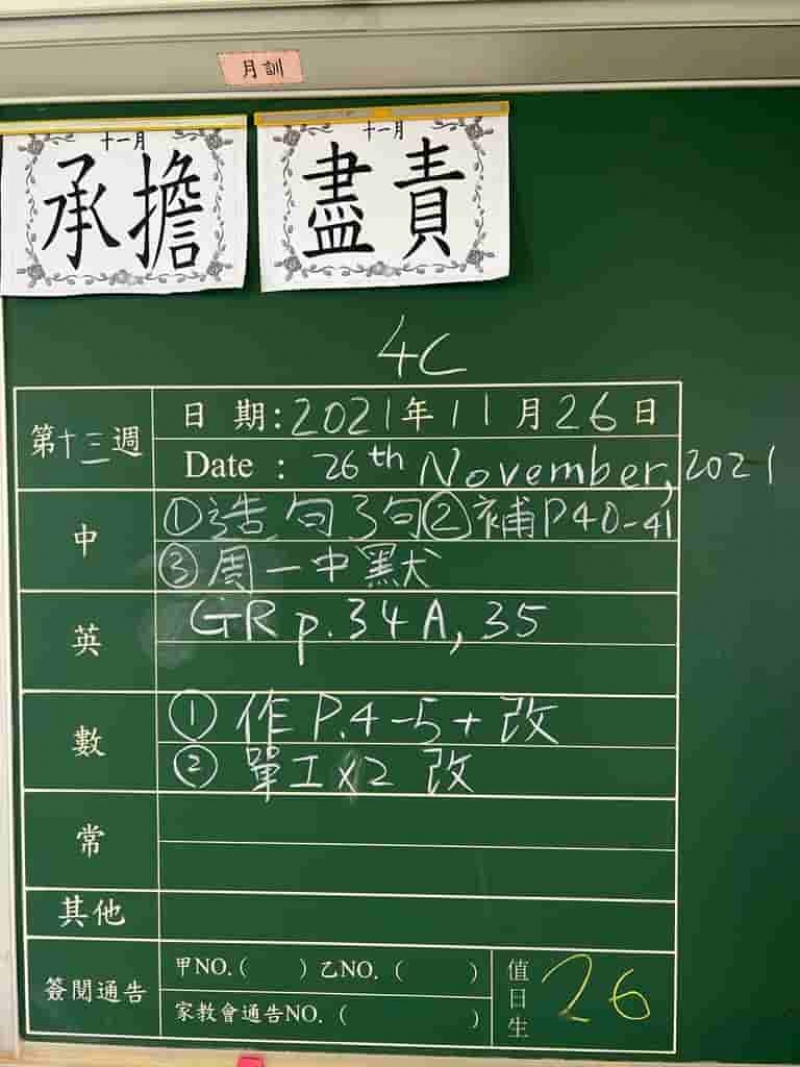 月訓
十一月
承擔
十一月
盡責
4C
第十三週
日 期:2021年11月26日
Date : 26th November, 2021
中
①造句3句②補P40-41
③周一中默
英
GR p.34A, 35
數
① 作 P.4-5+改
② 單工x2 改
常
其他
簽閱通告
甲NO.( ) 乙NO. ( )
家教會通告NO. ( )
值日生
26